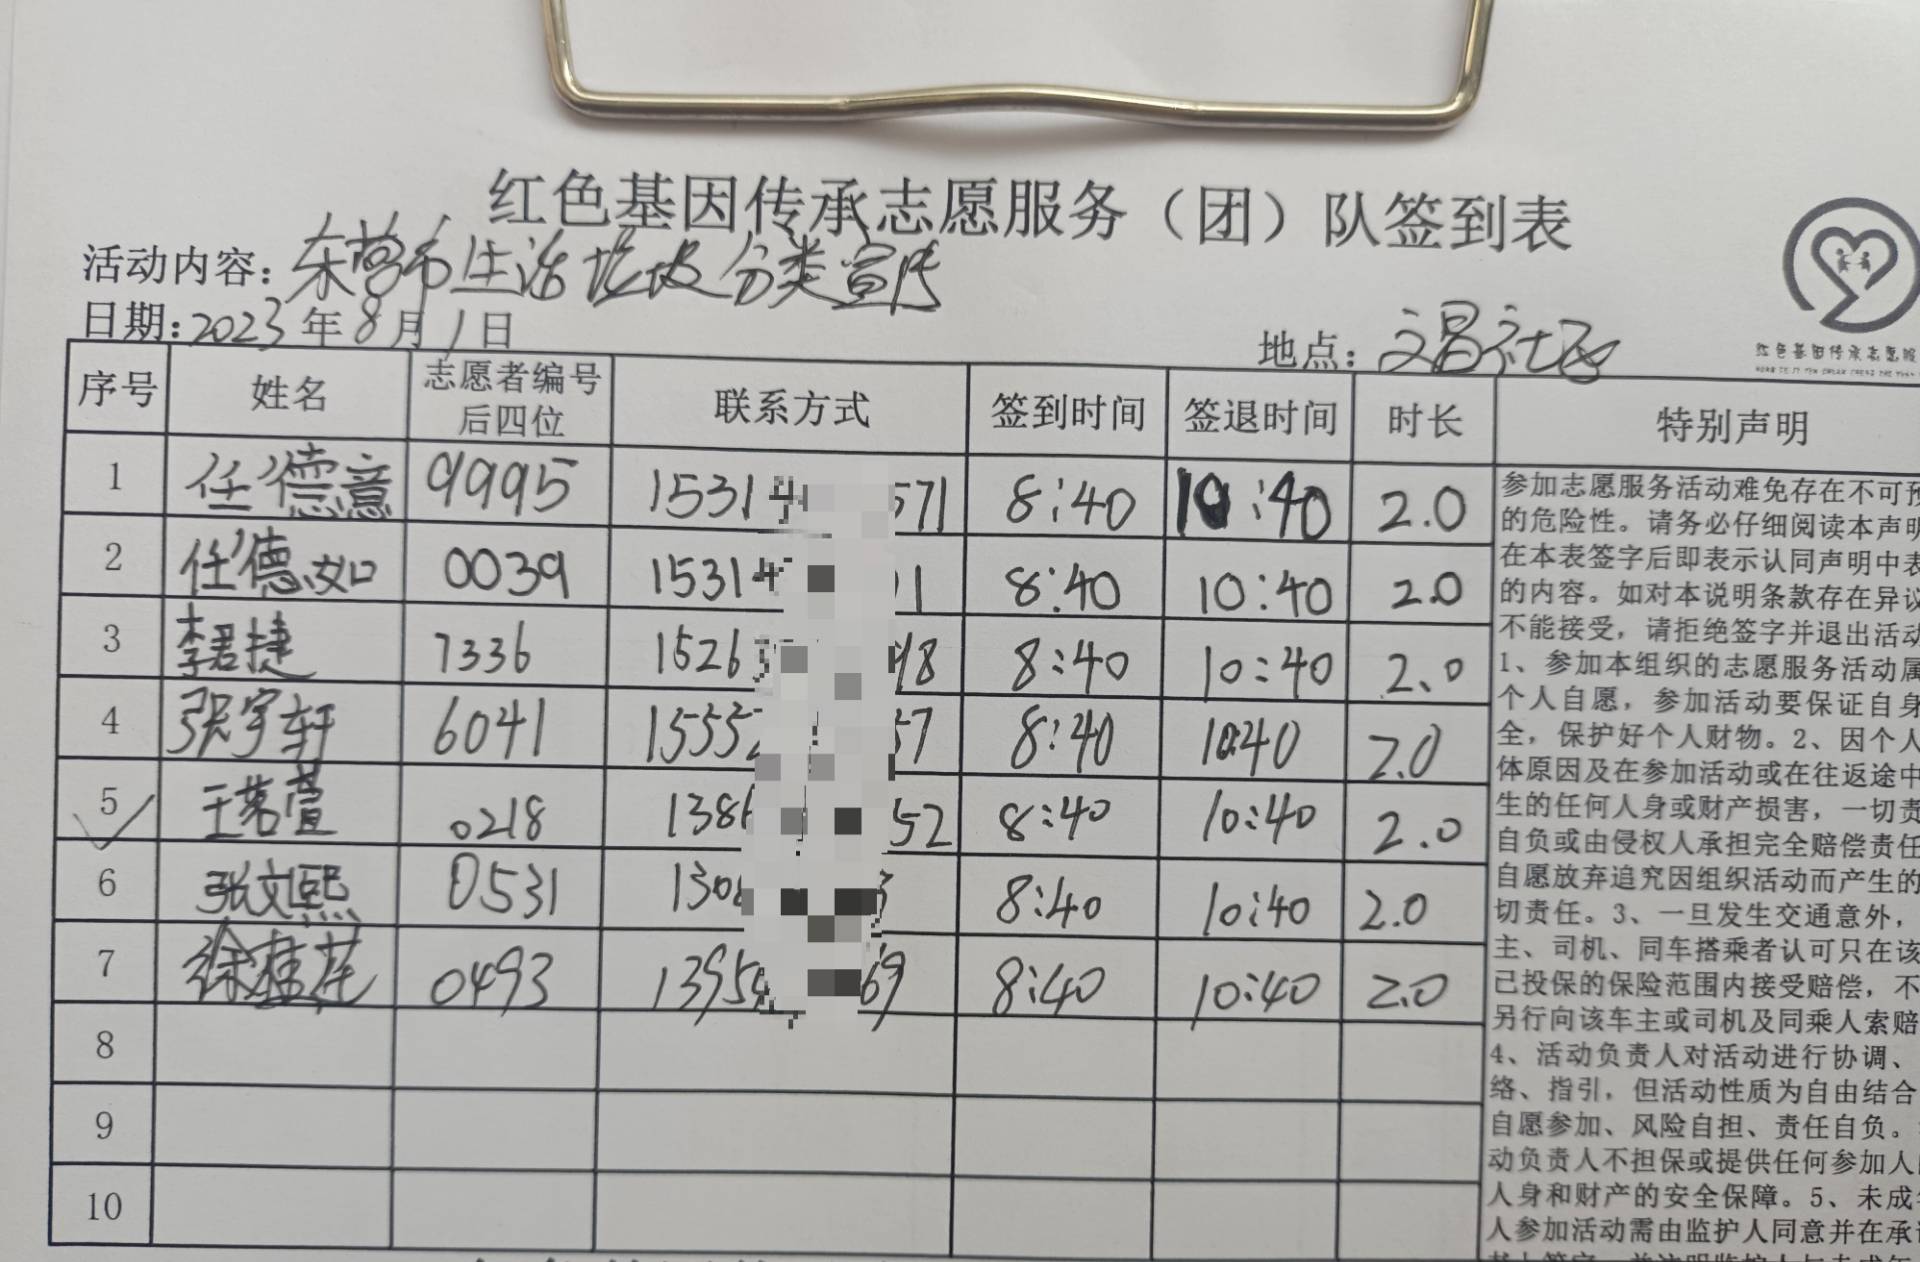 红色基因传承志愿服务（团）队签到表
活动内容：东营市生活垃圾分类宣传
日期：2023年8月1日
地点：文昌社区
红色基因传承志愿服
序号 姓名 志愿者编号后四位 联系方式 签到时间 签退时间 时长 特别声明
1 任德意 9995 1531 571 8:40 10:40 2.0
2 任德如 0039 1531 1 8:40 10:40 2.0
3 李君捷 7336 1526 98 8:40 10:40 2.0
4 张宇轩 6041 1555 57 8:40 10:40 2.0
5 王若萱 0218 138 52 8:40 10:40 2.0
6 张文熙 0531 130 3 8:40 10:40 2.0
7 徐桂莲 0493 1395 69 8:40 10:40 2.0
8
9
10
参加志愿服务活动难免存在不可预
的危险性。请务必仔细阅读本声明
在本表签字后即表示认同声明中表
的内容。如对本说明条款存在异议
不能接受，请拒绝签字并退出活动
1、参加本组织的志愿服务活动属
个人自愿，参加活动要保证自身
全，保护好个人财物。2、因个人
体原因及在参加活动或在往返途中
生的任何人身或财产损害，一切责
自负或由侵权人承担完全赔偿责任
自愿放弃追究因组织活动而产生的
切责任。3、一旦发生交通意外，
主、司机、同车搭乘者认可只在该
已投保的保险范围内接受赔偿，不
另行向该车主或司机及同乘人索赔
4、活动负责人对活动进行协调、
络、指引，但活动性质为自由结合
自愿参加、风险自担、责任自负。
动负责人不担保或提供任何参加人
人身和财产的安全保障。5、未成
人参加活动需由监护人同意并在承